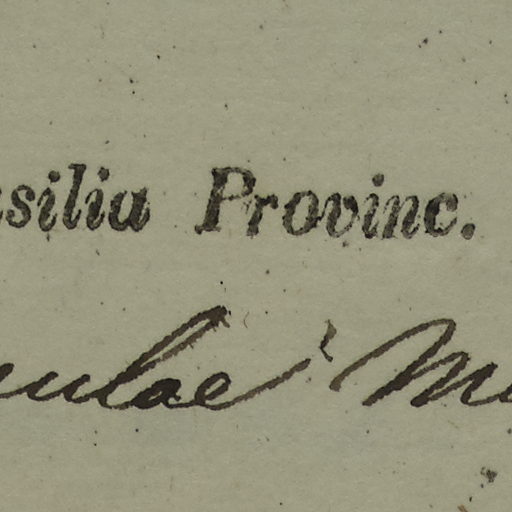 silia Provinc.
ulae M